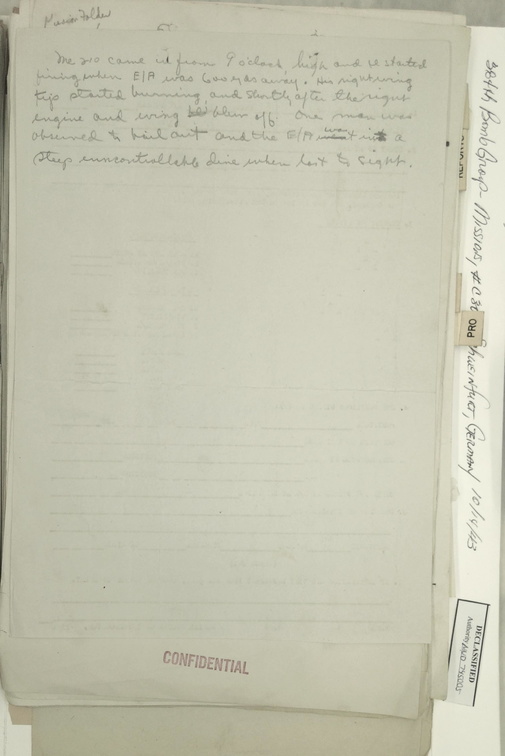 Mission Folder
Me 210 came in from 9 o'clock high and se started
firing when E/A was 600 yds away. His right wing
tip started burning and shortly after the right
engine and wing blew off. One man was
observed to bail out and the E/A went into a
steep uncontrollable dive when lost to sight.
CONFIDENTIAL
384th Bomb Group - Mission, #
Schweinfurt, Germany 10/14/43
PRO
DECLASSIFIED
Authority NND